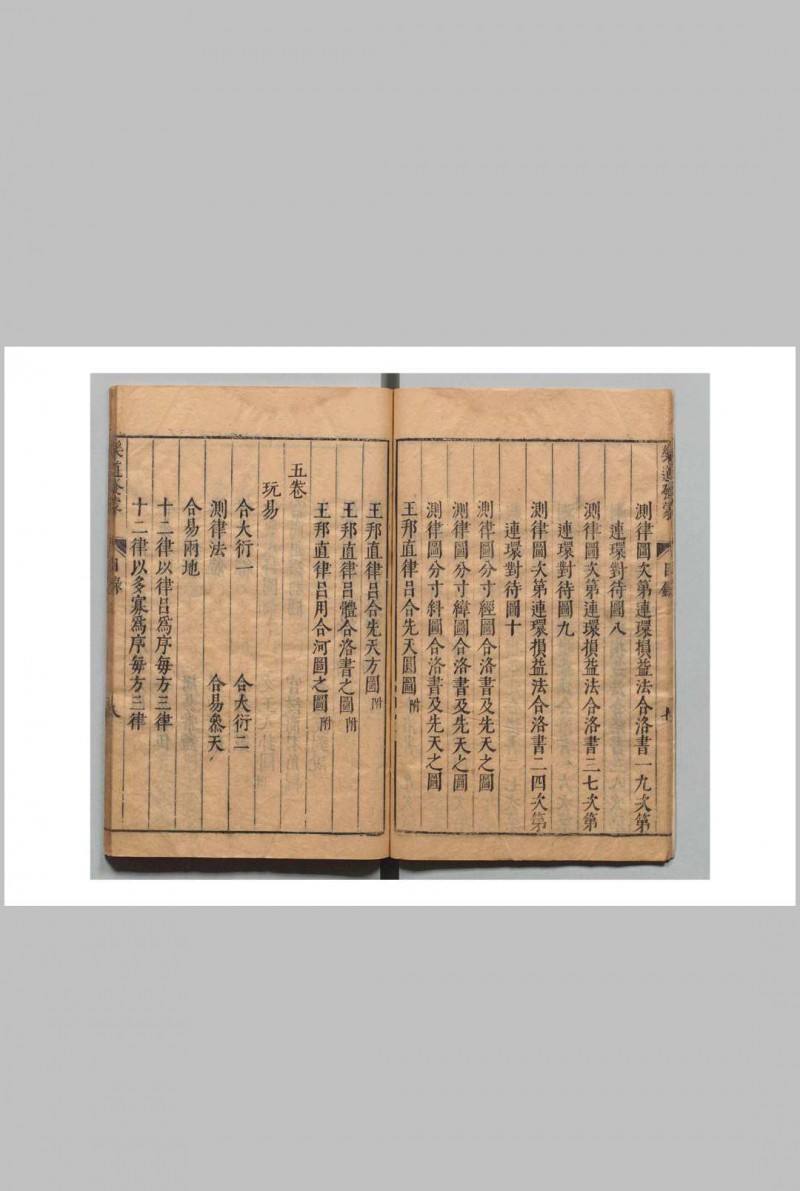 測律圖次第連環損益法合洛書一九次第
連環對待圖八
測律圖次第連環損益法合洛書三七次第
連環對待圖九
測律圖次第連環損益法合洛書二四次第
連環對待圖十
測律圖分寸經圖合洛書及先天之圖
測律圖分寸緯圖合洛書及先天之圖
測律圖分寸斜圖合洛書及先天之圖
王邦直律呂合先天圓圖 附
王邦直律呂合先天方圖 附
王邦直律呂體合洛書之圖 附
王邦直律呂用合河圖之圖 附
五卷
玩易
合大衍一 合大衍二
測律法 合易叅天
合易兩地
十二律以律呂爲序每方三律
十二律以多寡爲序每方三律
目錄
八